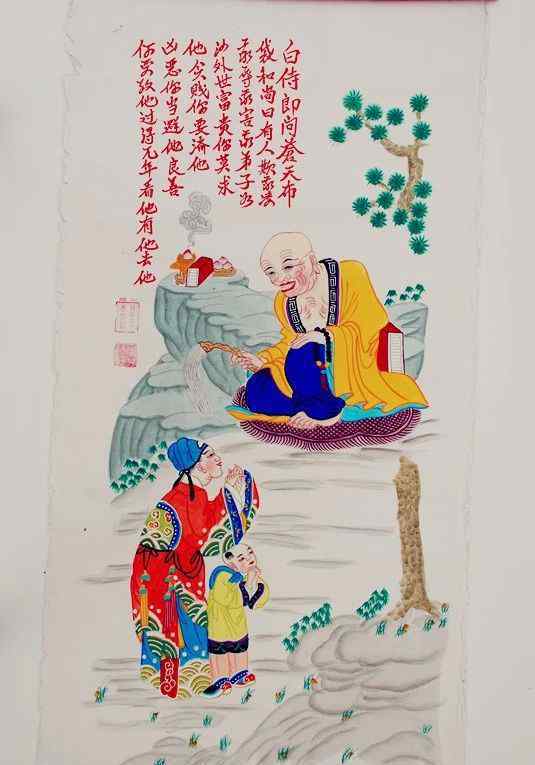 白侍郎问蒼天布
袋和尚曰有人欺我凌
我辱我害我弟子
沙外世富贵你莫求
他贪贱你要济他
凶恶你当避他良善
你要教他过得几年看他有他去他